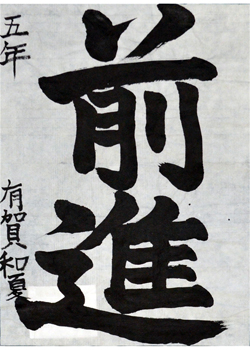 前進
五年
有賀和夏